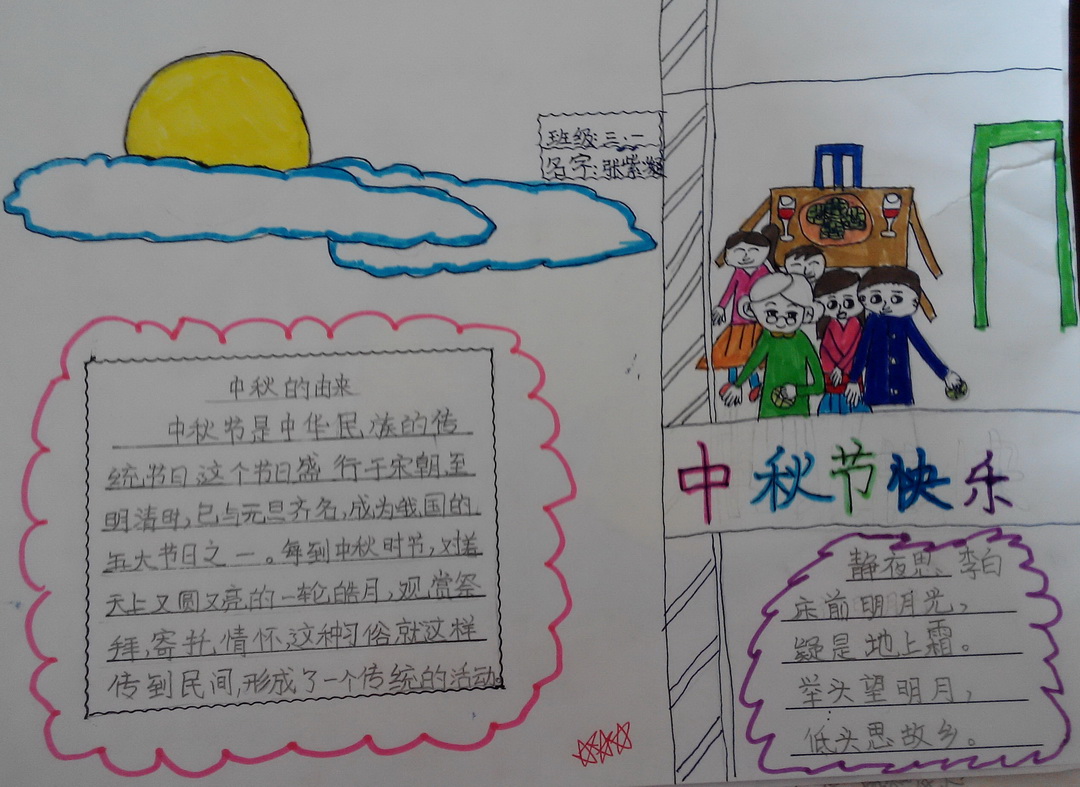 班级:三、一
名字:张紫
中秋的由来
中秋节是中华民族的传
统节日,这个节日盛行于宋朝,至
明清时,已与元旦齐名,成为我国的
五大节日之一。每到中秋时节,对着
天上又圆又亮的一轮皓月,观赏祭
拜,寄托情怀,这种习俗就这样
传到民间,形成了一个传统的活动。
中秋节快乐
静夜思 李白
床前明月光,
疑是地上霜。
举头望明月,
低头思故乡。